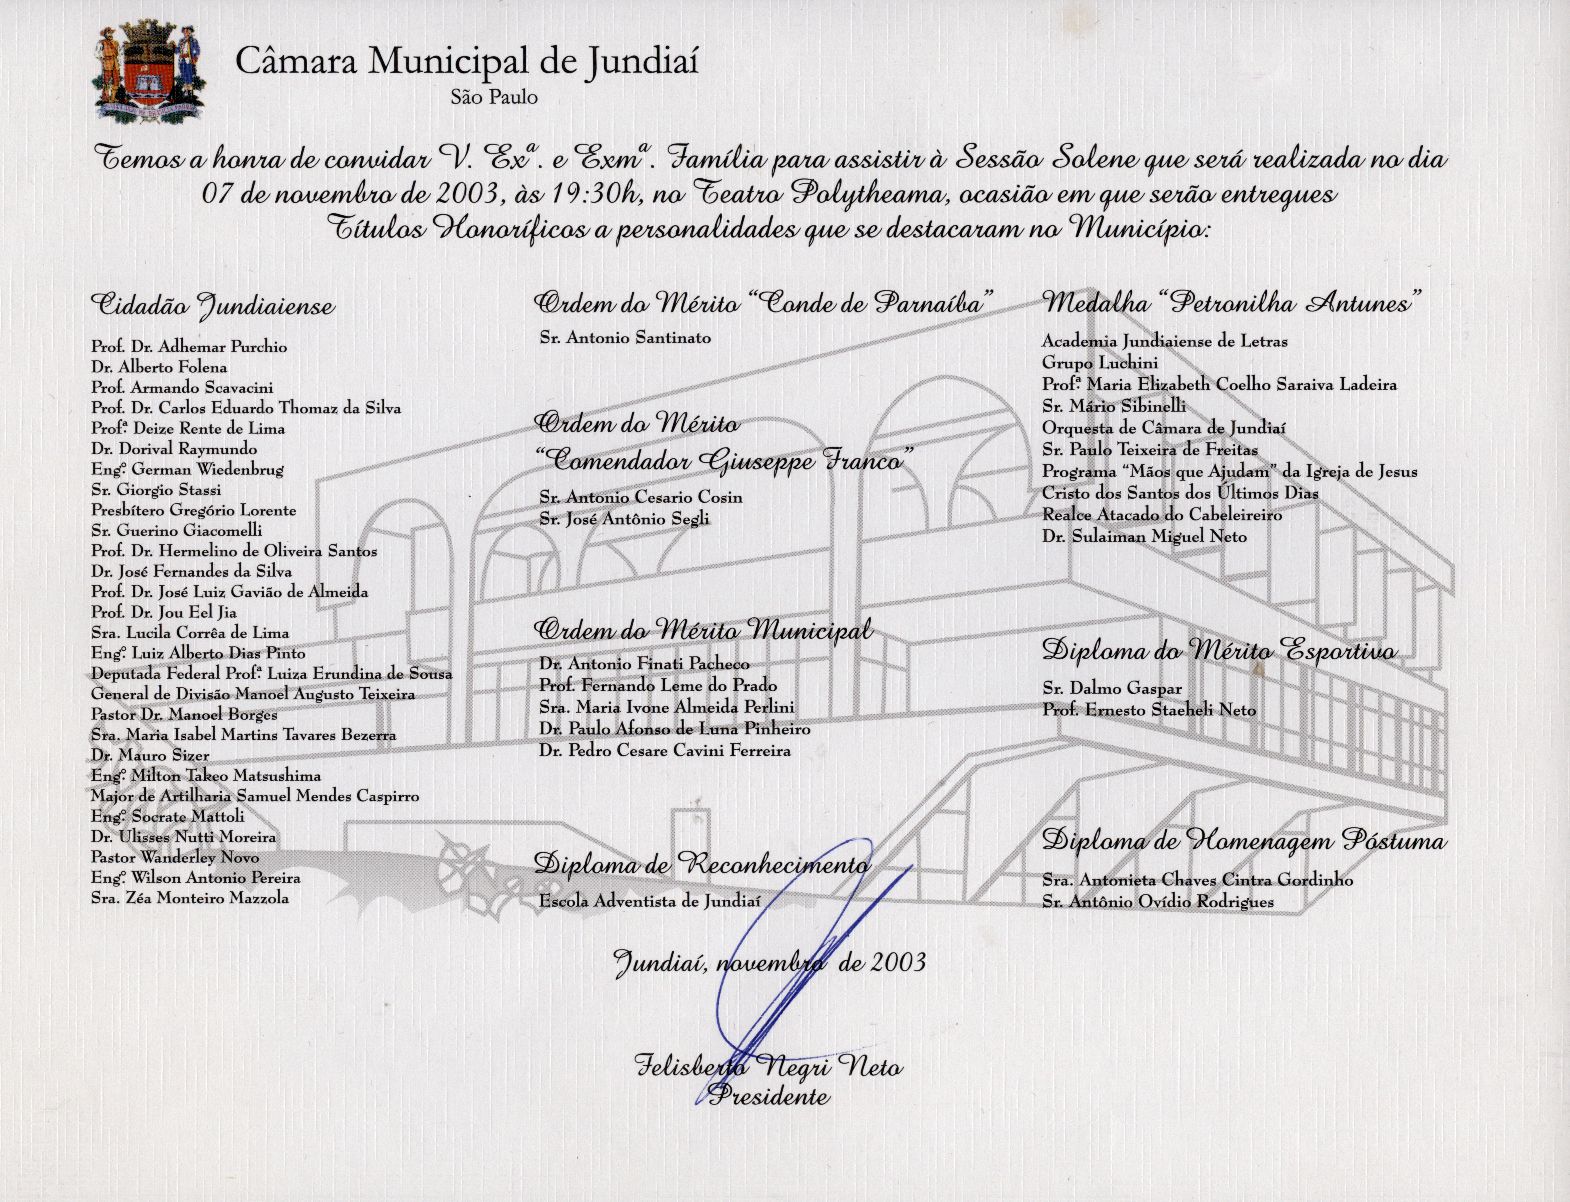 Câmara Municipal de Jundiaí
São Paulo
Temos a honra de convidar V. Exª. e Exmª. Família para assistir à Sessão Solene que será realizada no dia
07 de novembro de 2003, às 19:30h, no Teatro Polytheama, ocasião em que serão entregues
Títulos Honoríficos a personalidades que se destacaram no Município:
Cidadão Jundiaiense
Prof. Dr. Adhemar Purchio
Dr. Alberto Folena
Prof. Armando Scavacini
Prof. Dr. Carlos Eduardo Thomaz da Silva
Profª Deize Rente de Lima
Dr. Dorival Raymundo
Engº German Wiedenbrug
Sr. Giorgio Stassi
Presbítero Gregório Lorente
Sr. Guerino Giacomelli
Prof. Dr. Hermelino de Oliveira Santos
Dr. José Fernandes da Silva
Prof. Dr. José Luiz Gavião de Almeida
Prof. Dr. Jou Eel Jia
Sra. Lucila Corrêa de Lima
Engº Luiz Alberto Dias Pinto
Deputada Federal Profª Luiza Erundina de Sousa
General de Divisão Manoel Augusto Teixeira
Pastor Dr. Manoel Borges
Sra. Maria Isabel Martins Tavares Bezerra
Dr. Mauro Sizer
Engº Milton Takeo Matsushima
Major de Artilharia Samuel Mendes Caspirro
Engº Socrate Mattoli
Dr. Ulisses Nutti Moreira
Pastor Wanderley Novo
Engº Wilson Antonio Pereira
Sra. Zéa Monteiro Mazzola
Ordem do Mérito “Conde de Parnaíba”
Sr. Antonio Santinato
Ordem do Mérito
“Comendador Giuseppe Franco”
Sr. Antonio Cesario Cosin
Sr. José Antônio Segli
Ordem do Mérito Municipal
Dr. Antonio Finati Pacheco
Prof. Fernando Leme do Prado
Sra. Maria Ivone Almeida Perlini
Dr. Paulo Afonso de Luna Pinheiro
Dr. Pedro Cesare Cavini Ferreira
Diploma de Reconhecimento
Escola Adventista de Jundiaí
Medalha “Petronilha Antunes”
Academia Jundiaiense de Letras
Grupo Luchini
Profª Maria Elizabeth Coelho Saraiva Ladeira
Sr. Mário Sibinelli
Orquesta de Câmara de Jundiaí
Sr. Paulo Teixeira de Freitas
Programa “Mãos que Ajudam” da Igreja de Jesus
Cristo dos Santos dos Últimos Dias
Realce Atacado do Cabeleireiro
Dr. Sulaiman Miguel Neto
Diploma do Mérito Esportivo
Sr. Dalmo Gaspar
Prof. Ernesto Staeheli Neto
Diploma de Homenagem Póstuma
Sra. Antonieta Chaves Cintra Gordinho
Sr. Antônio Ovídio Rodrigues
Jundiaí, novembro de 2003
Felisberto Negri Neto
Presidente